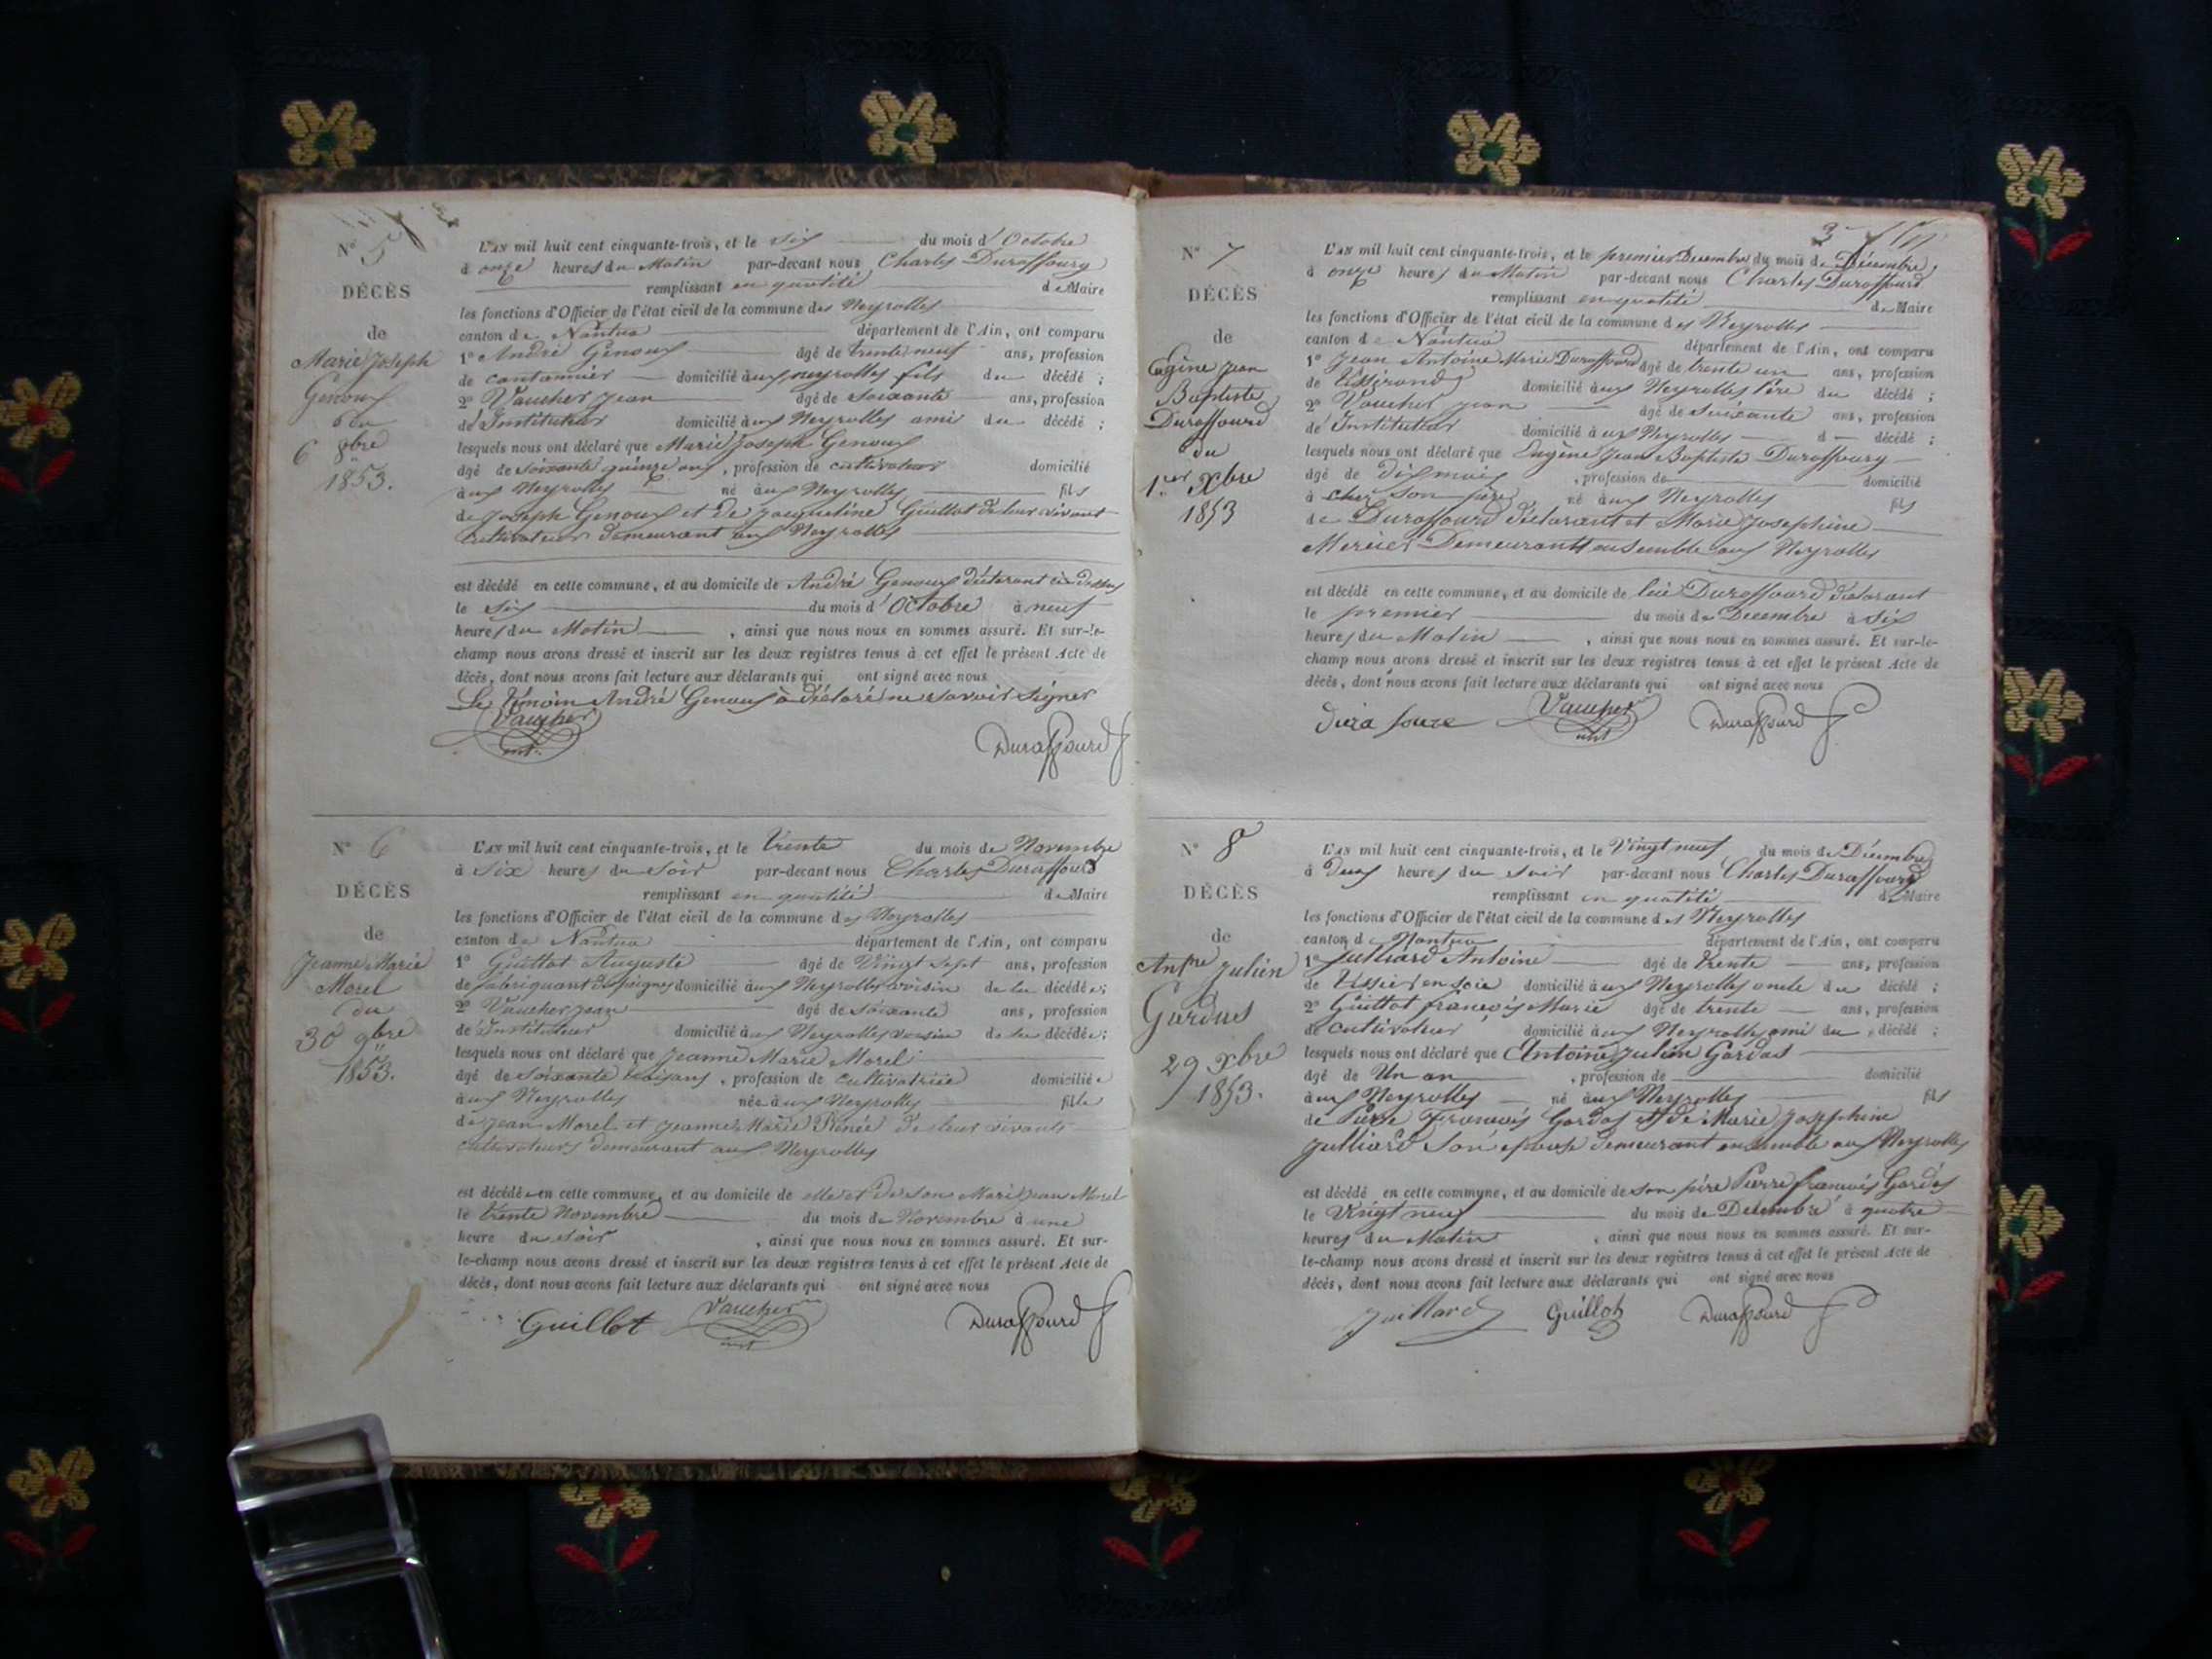 N° 5
DÉCÈS
de
Marie Joseph
Genoux
du
6 8bre
1853.
L'AN mil huit cent cinquante-trois, et le Six du mois d'Octobre
à onze heures du Matin par-devant nous Charles Duraffourg
remplissant en qualité de Maire
les fonctions d'Officier de l'état civil de la commune des Neyrolles
canton de Nantua département de l'Ain, ont comparu
1° André Genoux âgé de trente neuf ans, profession
de cantonnier domicilié aux neyrolles fils du décédé ;
2° Vaucher Jean âgé de Soixante ans, profession
d'Instituteur domicilié aux Neyrolles ami du décédé ;
lesquels nous ont déclaré que Marie Joseph Genoux
âgé de soixante quinze ans, profession de cultivateur domicilié
aux Neyrolles né aux Neyrolles fils
de Joseph Genoux et de Jacqueline Guillot de leur vivant
cultivateur demeurant aux Neyrolles
est décédé en cette commune, et au domicile de André Genoux déclarant ci dessus
le Six du mois d'Octobre à neuf
heures du Matin, ainsi que nous nous en sommes assuré. Et sur-le-
champ nous avons dressé et inscrit sur les deux registres tenus à cet effet le présent Acte de
décès, dont nous avons fait lecture aux déclarants qui ont signé avec nous
Le Témoin André Genoux à déclaré ne savoir signer
Vaucher
inst.
Duraffourd
N° 6
DÉCÈS
de
Jeanne Marie
Morel
du
30 9bre
1853.
L'AN mil huit cent cinquante-trois, et le Trente du mois de Novembre
à Six heures du Soir par-devant nous Charles Duraffourd
remplissant en qualité de Maire
les fonctions d'Officier de l'état civil de la commune des Neyrolles
canton de Nantua département de l'Ain, ont comparu
1° Guillot Auguste âgé de Vingt Sept ans, profession
de fabriquant de peignes domicilié aux Neyrolles voisin de la décédée;
2° Vaucher Jean âgé de Soixante ans, profession
de Instituteur domicilié aux Neyrolles voisin de la décédée;
lesquels nous ont déclaré que Jeanne Marie Morel
âgé de Soixante trois ans, profession de cultivatrice domiciliée
aux Neyrolles née aux Neyrolles fille
de Jean Morel et Jeanne Marie de leur vivants
cultivateurs demeurant aux Neyrolles
est décédée en cette commune, et au domicile de elle et de son Mari Jean Morel
le trente Novembre du mois de Novembre à une
heure du Soir, ainsi que nous nous en sommes assuré. Et sur-
le-champ nous avons dressé et inscrit sur les deux registres tenus à cet effet le présent Acte de
décès, dont nous avons fait lecture aux déclarants qui ont signé avec nous
Guillot Vaucher
inst
Duraffourd
3
N° 7
DÉCÈS
de
Eugène Jean
Baptiste
Duraffourd
du
1er Xbre
1853
L'AN mil huit cent cinquante-trois, et le premier Decembre du mois de Décembre
à onze heures du Matin par-devant nous Charles Duraffourd
remplissant en qualité de Maire
les fonctions d'Officier de l'état civil de la commune des Neyrolles
canton de Nantua département de l'Ain, ont comparu
1° Jean Antoine Marie Duraffourd âgé de trente un ans, profession
de Tisserand domicilié aux Neyrolles Père du décédé ;
2° Vaucher Jean âgé de Soixante ans, profession
d'Instituteur domicilié à aux Neyrolles d décédé ;
lesquels nous ont déclaré que Eugène Jean Baptiste Duraffourg
âgé de dix mois, profession de domicilié
à chez son père né aux Neyrolles fils
de Duraffourd déclarant et Marie Josephine
Mercier Demeurant ensemble aux Neyrolles
est décédé en cette commune, et au domicile de Duraffourd déclarant
le premier du mois de Decembre à Six
heures du Matin, ainsi que nous nous en sommes assuré. Et sur-le-
champ nous avons dressé et inscrit sur les deux registres tenus à cet effet le présent Acte de
décès, dont nous avons fait lecture aux déclarants qui ont signé avec nous
Vaucher
inst
Duraffourd
N° 8
DÉCÈS
de
Antne Julien
Gardas
29 Xbre
1853.
L'AN mil huit cent cinquante-trois, et le Vingt neuf du mois de Décembre
à Deux heures du soir par-devant nous Charles Duraffourg
remplissant en qualité de Maire
les fonctions d'Officier de l'état civil de la commune des Neyrolles
canton de Nantua département de l'Ain, ont comparu
1° Julliard Antoine âgé de Trente ans, profession
de Tissier en soie domicilié aux Neyrolles oncle du décédé ;
2° Guillot françois Marie âgé de trente ans, profession
de cultivateur domicilié aux Neyrolles ami du décédé ;
lesquels nous ont déclaré que Antoine Julien Gardas
âgé de Un an, profession de domicilié
aux Neyrolles né aux Neyrolles fils
de Pierre François Gardas et de Marie Josephine
Julliard Son épouse demeurant ensemble aux Neyrolles
est décédé en cette commune, et au domicile de son père Pierre françois Gardas
le Vingt neuf du mois de Decembre à quatre
heures du Matin, ainsi que nous nous en sommes assuré. Et sur-
le-champ nous avons dressé et inscrit sur les deux registres tenus à cet effet le présent Acte de
décès, dont nous avons fait lecture aux déclarants qui ont signé avec nous
Juillard Guillot Duraffourd